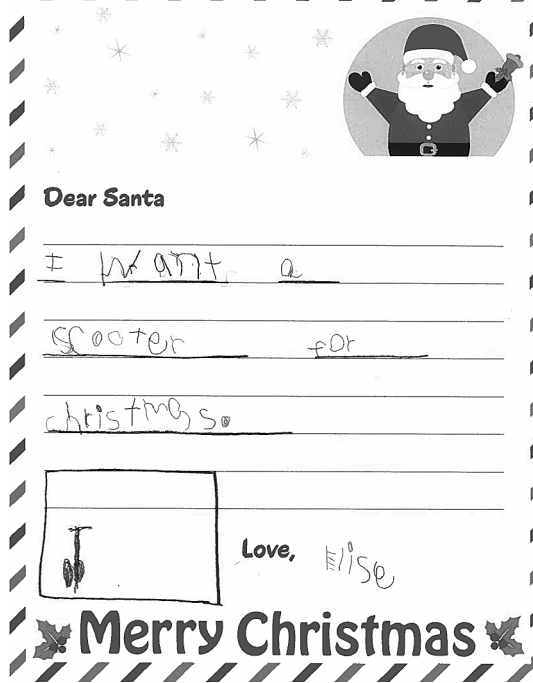 Dear Santa
I want a
scooter for
christmas.
Love, Elise
Merry Christmas